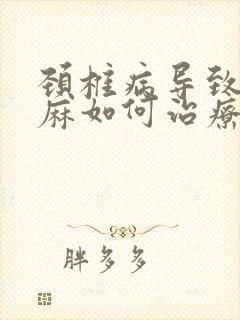 颈椎病导致
麻如何治疗
胖多多